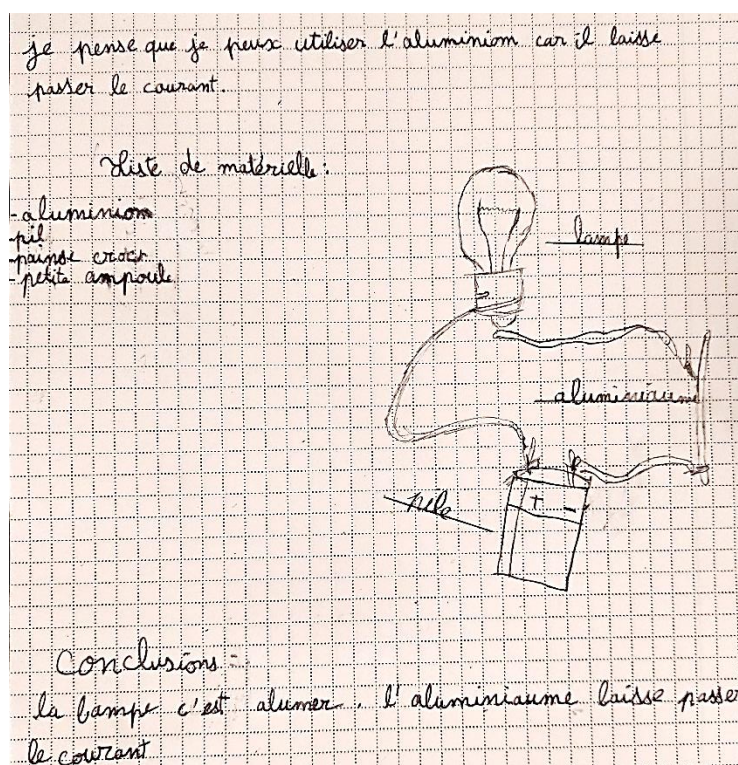 je pense que je peux utiliser l'aluminiom car il laisse
passer le courant.
Liste de matérielle :
-aluminiom
-pil
-painse crocr
-petite ampoule
lampe
aluminiaume
pile
+ -
Conclusions :
la lampe c'est alumer. l'aluminiaume laisse passer
le courant